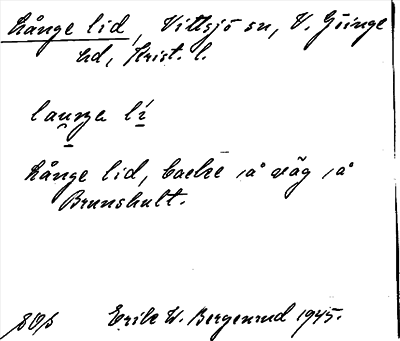 Långe lid, Vittsjö sn, V. Göinge
hd, Krist. l.
Långe lid, backe å väg å
Brunshult.
Erik W. Bergenrud 1945.